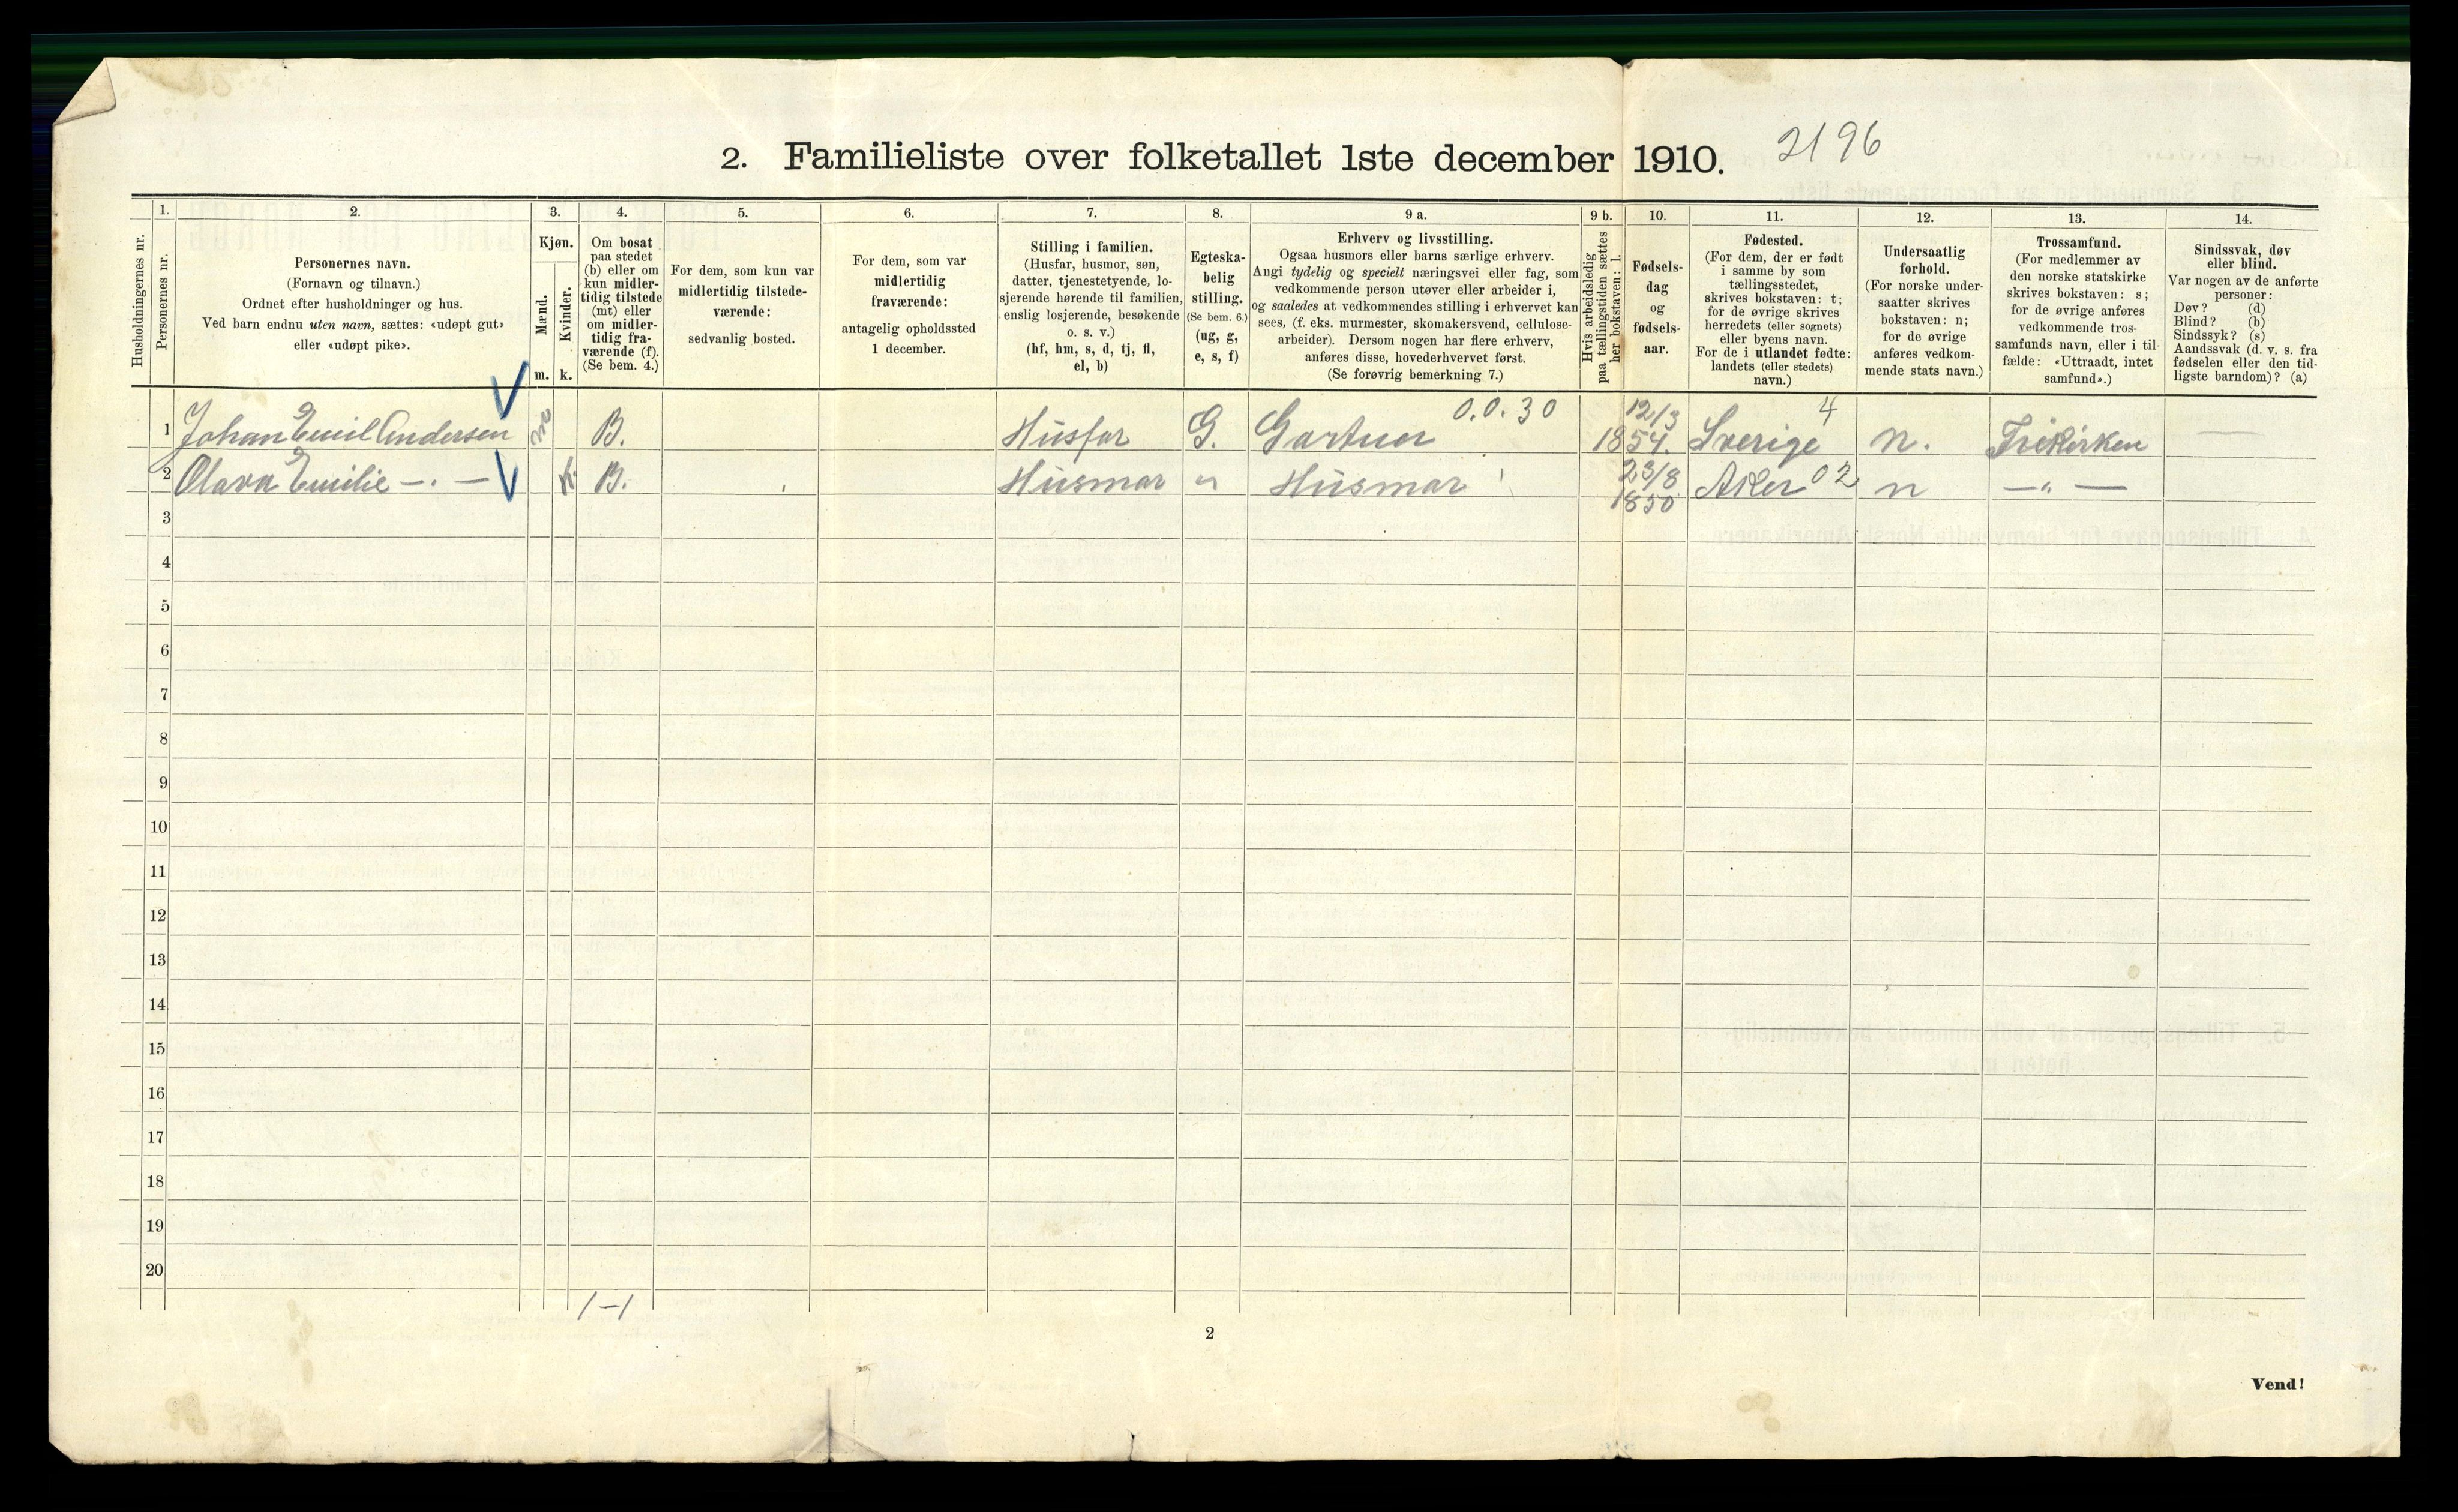 2. Familieliste over folketallet 1ste december 1910. 2196
Husholdningernes nr.
1.
Personernes nr.
2.
Personernes navn.
(Fornavn og tilnavn.)
Ordnet efter husholdninger og hus.
Ved barn endnu uten navn, sættes: «udøpt gut»
eller «udøpt pike».
3.
Kjøn.
Mænd.
Kvinder.
m. k.
4.
Om bosat
paa stedet
(b) eller om
kun midler-
tidig tilstede
(mt) eller
om midler-
tidig fra-
værende (f).
(Se bem. 4.)
5.
For dem, som kun var
midlertidig tilstede-
værende:
sedvanlig bosted.
6.
For dem, som var
midlertidig
fraværende:
antagelig opholdssted
1 december.
7.
Stilling i familien.
(Husfar, husmor, søn,
datter, tjenestetyende, lo-
sjerende hørende til familien,
enslig losjerende, besøkende
o. s. v.)
(hf, hm, s, d, tj, fl,
el, b)
8.
Egteska-
belig
stilling.
(Se bem. 6.)
(ug, g,
e, s, f)
9 a.
Erhverv og livsstilling.
Ogsaa husmors eller barns særlige erhverv.
Angi tydelig og specielt næringsvei eller fag, som
vedkommende person utøver eller arbeider i,
og saaledes at vedkommendes stilling i erhvervet kan
sees, (f. eks. murmester, skomakersvend, cellulose-
arbeider). Dersom nogen har flere erhverv,
anføres disse, hovederhvervet først.
(Se forøvrig bemerkning 7.)
9 b.
Hvis arbeidsledig
paa tællingstiden sættes
her bokstaven: l.
10.
Fødsels-
dag
og
fødsels-
aar.
11.
Fødested.
(For dem, der er født
i samme by som
tællingsstedet,
skrives bokstaven: t;
for de øvrige skrives
herredets (eller sognets)
eller byens navn.
For de i utlandet fødte:
landets (eller stedets)
navn.)
12.
Undersaatlig
forhold.
(For norske under-
saatter skrives
bokstaven: n;
for de øvrige
anføres vedkom-
mende stats navn.)
13.
Trossamfund.
(For medlemmer av
den norske statskirke
skrives bokstaven: s;
for de øvrige anføres
vedkommende tros-
samfunds navn, eller i til-
fælde: «Uttraadt, intet
samfund».)
14.
Sindssvak, døv
eller blind.
Var nogen av de anførte
personer:
Døv? (d)
Blind? (b)
Sindssyk? (s)
Aandssvak (d. v. s. fra
fødselen eller den tid-
ligste barndom)? (a)
1 Johan Emil Andersen m B. Husfar G. Gartner 0.0.30 12/3 1854. Sverige 4 n. Frikirken —
2 Olava Emilie —.— k. B. Husmor " Husmor 23/8 1850 Aker 02 n —"—
3
4
5
6
7
8
9
10
11
12
13
14
15
16
17
18
19
20
1–1
2
Vend!